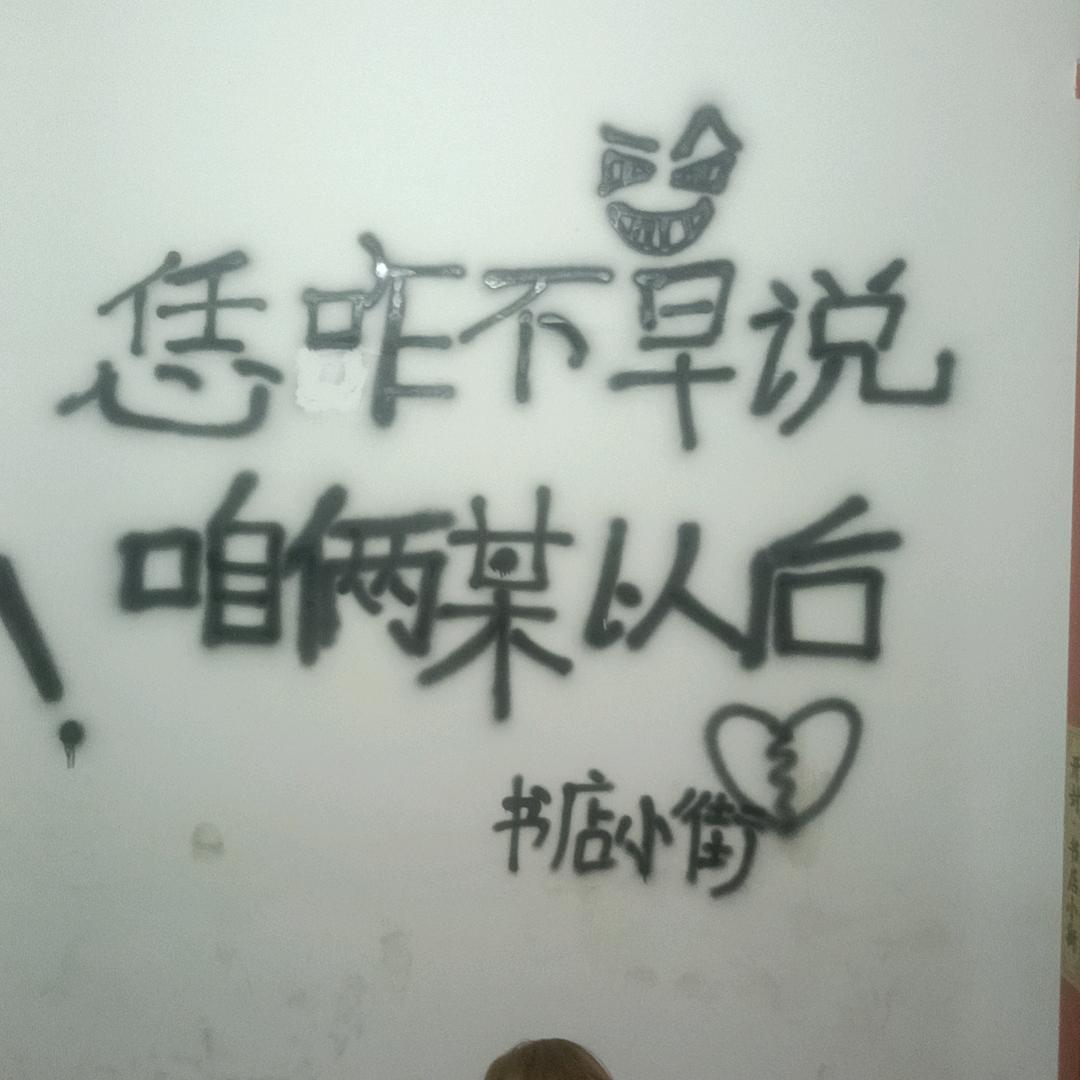 恁咋不早说
咱俩某以后
书店小街